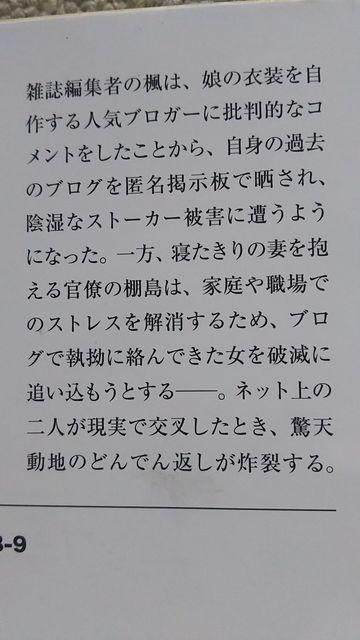 雑誌編集者の楓は、娘の衣装を自
作する人気ブロガーに批判的なコ
メントをしたことから、自身の過去
のブログを匿名掲示板で晒され、
陰湿なストーカー被害に遭うよう
になった。一方、寝たきりの妻を抱
える官僚の棚島は、家庭や職場で
のストレスを解消するため、ブロ
グで執拗に絡んできた女を破滅に
追い込もうとする――。ネット上の
二人が現実で交叉したとき、驚天
動地のどんでん返しが炸裂する。
-9